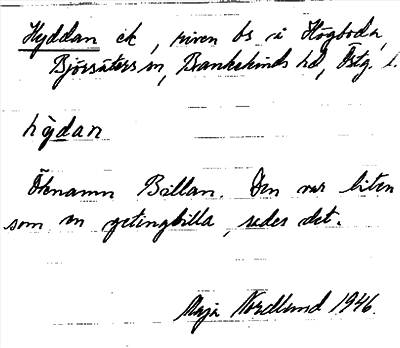 Hyddan ek, riven bs i Högboda,
Björsäters sn, Bankekinds hd, Östg. l.
hỳdan
Öknamn Bällan. Den var liten
som en getingbilla, sades det.
Maja Nordlund 1946.